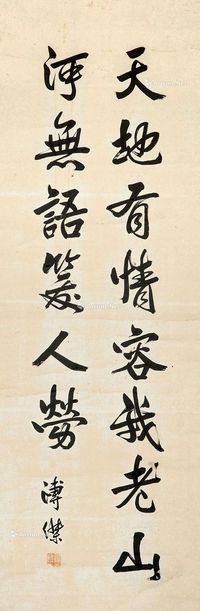 天地有情容我老山
河無語笑人勞
溥傑